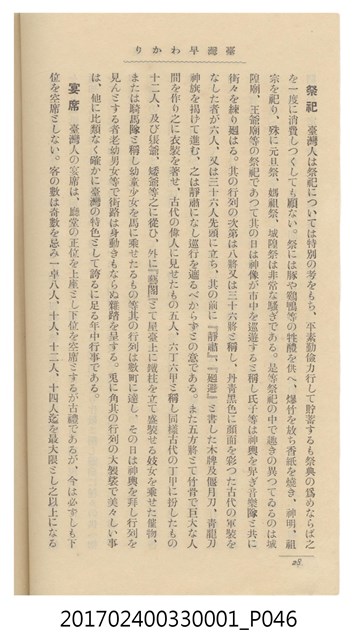 臺灣早わかり
祭祀 臺灣人は祭祀については特別の考をもち、平素勤儉力行して貯蓄するも祭典の爲めならば之
を一度に消費しつくしても顧ない。祭には豚や鷄鴨等の牲醴を供へ、爆竹を放ち香紙を燒き、神明、祖
宗を祀り、殊に元旦祭、媽祖祭、城隍祭は非常な騷ぎである。是等祭祀の中で趣きの異つてゐるのは城
隍廟、王爺廟等の祭祀であつて其の日は神像が市中を巡遊すると稱し氏子等は神輿を舁ぎ音樂隊と共に
街々を練り廻はる。其の行列の次第は八將又は三十六將と稱し、丹靑黑色に顏面を彩つた古代の軍裝を
なした者が六人、又は三十六人先頭に立ち、其の前に『靜肅』、『廻避』と書した木牌及偃月刀、靑龍刀
神旗を揭けて進む、之は靜肅になし巡行を避るべからずとの意である。また五方將とて竹骨で巨大な人
間を作り之に衣裝を著せ、古代の偉人に見せたもの五人、六丁六甲と稱し同樣古代の丁甲に扮したもの
十二人、及び張爺、矮爺等之に從ひ、外に『藝閣』とて屋臺上に鐵柱を立て盛裝せる妓女を乘せた催物、
または騎馬隊と稱し幼童少女を馬に乘せたるもの等其の行列は數町に達し、その日は神輿を拜し行列を
見んとする者老幼男女等で街路は身動きもならぬ雜踏を呈する。兎に角其の行列の大袈裟で美々しい事
は、他に比類なく確かに臺灣の特色として誇るに足る年中行事である。
宴席 臺灣人の宴席は、廳堂の正位を上座とし下位を空席とするが古禮であるが、今は必ずしも下
位を空席としない。客の數は奇數を忌み一卓八人、十人、十二人、十四人迄を最大限とし之以上になる
28.
201702400330001_P046